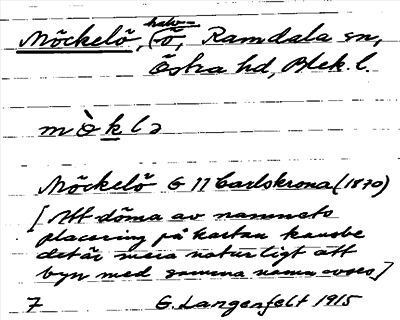 halv-
Möckelö, (ö, Ramdala sn,
Östra hd, Blek. l.
mò̀klɔ
Möckelö G 11 Carlskrona (1870)
[Att döma av namnets
placering på kartan kanske
det är mera naturligt att
byn med samma namn avses]
7 G. Langenfelt 1915